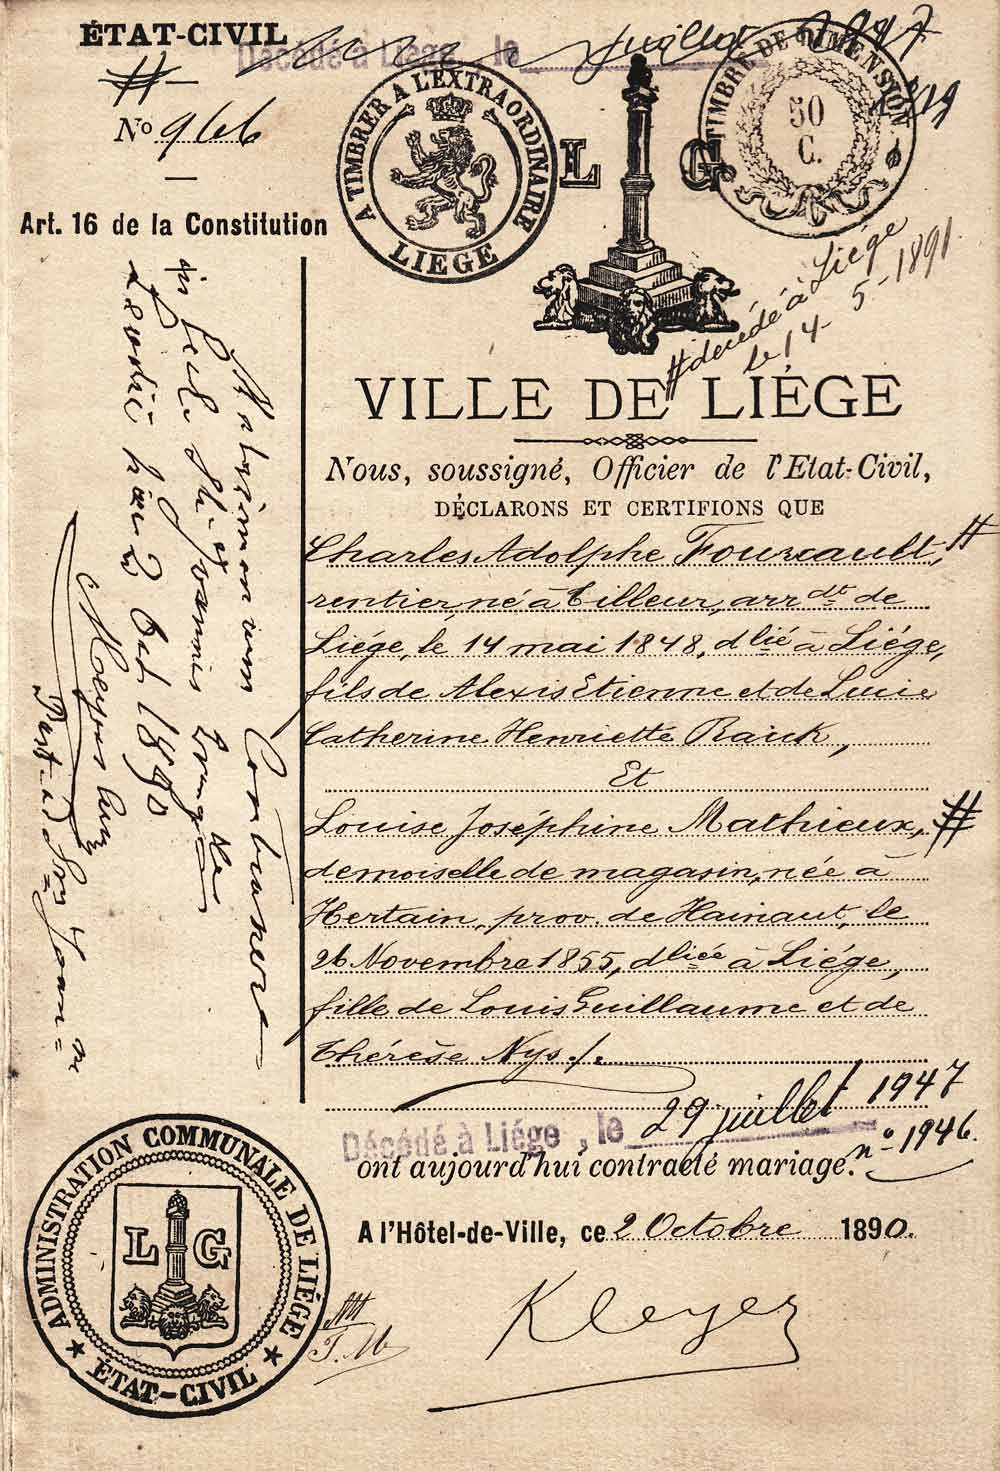 ÉTAT-CIVIL
Décédé à Liége, le juillet
Nº 966
Art. 16 de la Constitution
A TIMBRER A L'EXTRAORDINAIRE
LIEGE
L G
TIMBRE DE DIMENSION
50
C.
# décédé à Liége
le 14-5-1891
VILLE DE LIÉGE
Nous, soussigné, Officier de l'Etat-Civil,
DÉCLARONS ET CERTIFIONS QUE
Charles Adolphe Fourcault, #
rentier, né à Tilleur, arrdt de
Liége, le 14 mai 1848, dlié à Liége,
fils de Alexis Etienne et de Lucie
Catherine Henriette Raick,
Et
Louise Joséphine Mathieux, #
demoiselle de magasin, née à
Hertain, prov. de Hainaut, le
26 Novembre 1855, dliée à Liége,
fille de Louis Guillaume et de
Thérèse Nys ./.
Décédé à Liége, le 29 juillet 1947
nº 1946.
ont aujourd'hui contracté mariage.
A l'Hôtel-de-Ville, ce 2 Octobre 1890.
Kleyer
Matrimonium
hac 2 Oct 1890
ADMINISTRATION COMMUNALE DE LIÉGE
L G
ÉTAT-CIVIL